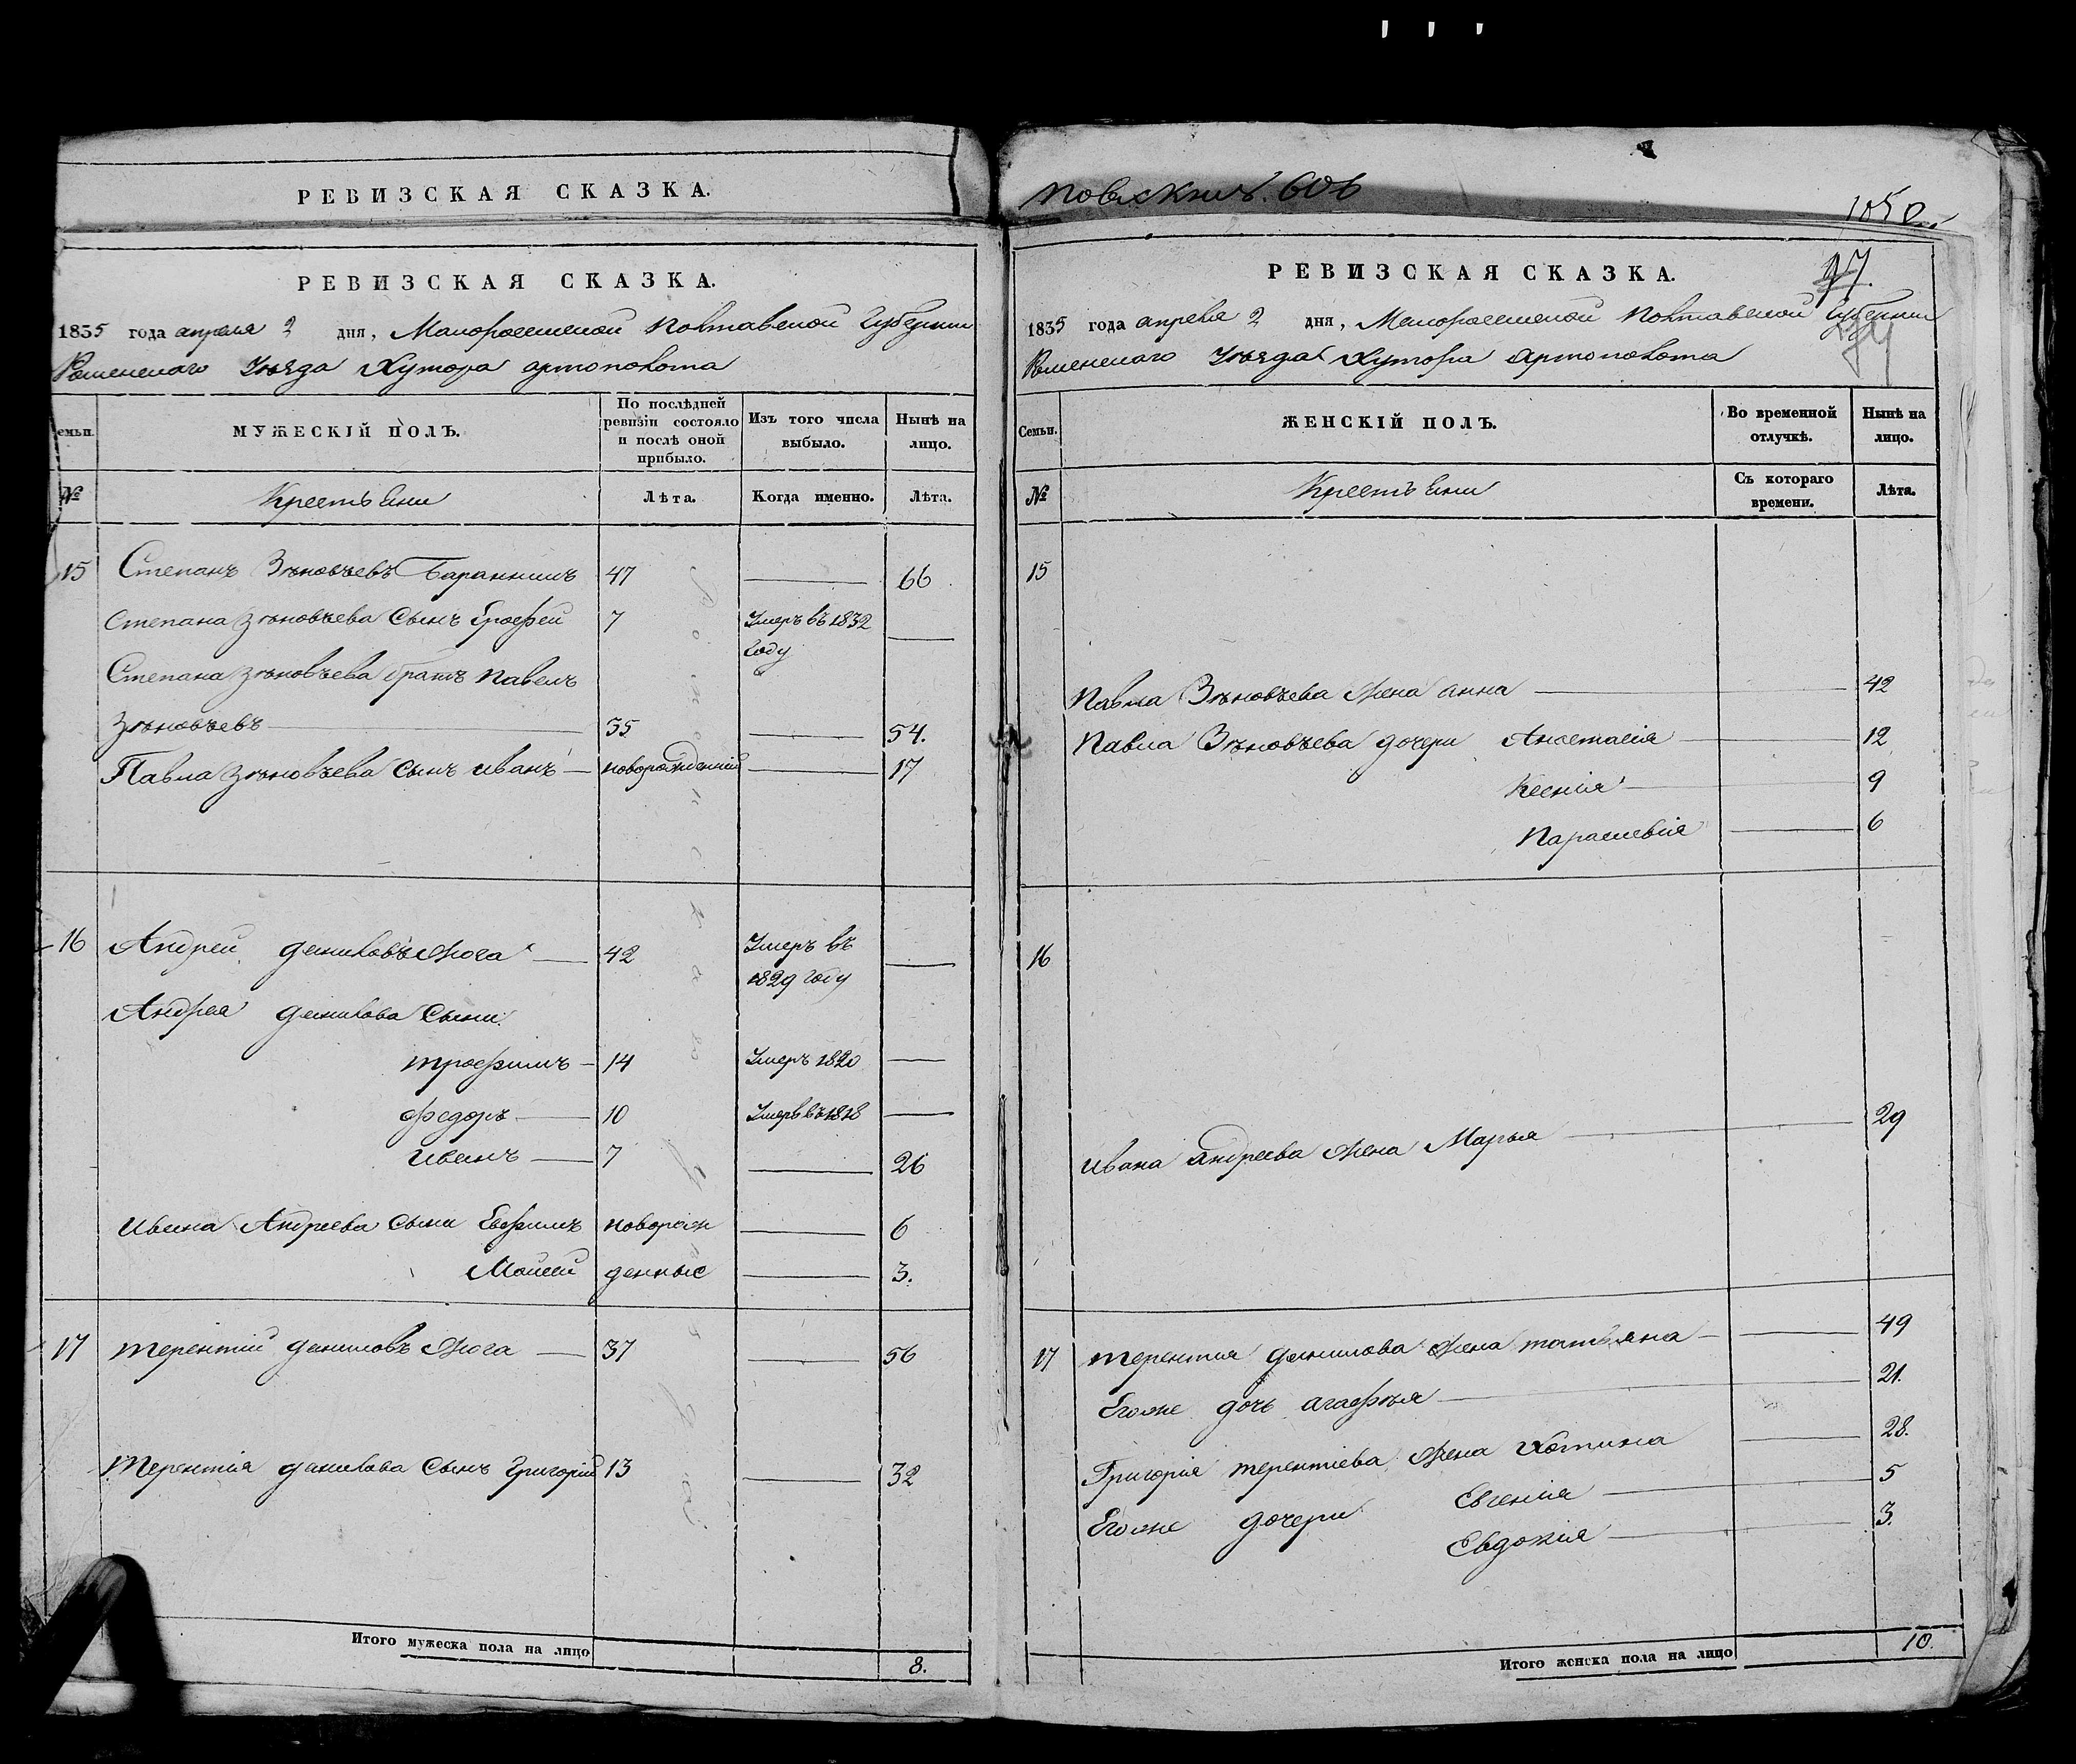 РЕВИЗСКАЯ СКАЗКА.
РЕВИЗСКАЯ СКАЗКА.
1835 года апреля 2 дня, Малоросийской Полтавской Губернии
Роменскаго Уезда Хутора артополота
емьи.
МУЖЕСКІЙ ПОЛЪ.
По послѣдней ревизіи состояло и послѣ оной прибыло.
Изъ того числа выбыло.
Нынѣ на лицо.
№
Крестьяни
Лѣта.
Когда именно.
Лѣта.
15 Степанъ Зѣновъевъ 47 66
Степана Зѣновъева сынъ Ерофей 7 Умеръ въ 1832
году
Степана Зѣновъева братъ Павелъ
Зѣновъевъ 35 54.
Павла Зѣновъева сынъ иванъ новорожденній 17
16 Андрей даниловъ Люга 42 Умеръ въ
1829 году
Андрея данилова сыни
трофимъ 14 Умеръ 1820
федоръ 10 Умеръ въ 1818
иванъ 7 26
ивана Андреева сыни Евфимъ новорож 6
Мойсей денные 3.
17 терентий даниловъ Люга 37 56
Терентия данилова сынъ Григорій 13 32
Итого мужеска пола на лицо
8.
606
1050.
РЕВИЗСКАЯ СКАЗКА.
17.
1835 года апреля 2 дня, Малоросийской Полтавской Губернии
Роменскаго Уезда Хутора артополота
Семьи.
ЖЕНСКІЙ ПОЛЪ.
Во временной отлучкѣ.
Нынѣ на лицо.
№
Крестьяни
Съ котораго времени.
Лѣта.
15
Павла Зѣновъева жена анна 42
Павла Зѣновъева дочери Анастасія 12
Ксенія 9
Параскевія 6
16
ивана андреева жена Марья 29
17 терентия данилова жена татьяна 49
Егоже дочь агафья 21.
Григорія терентіева жена 28.
Егоже дочери Евгенія 5
Евдокія 3.
Итого женска пола на лицо
10.